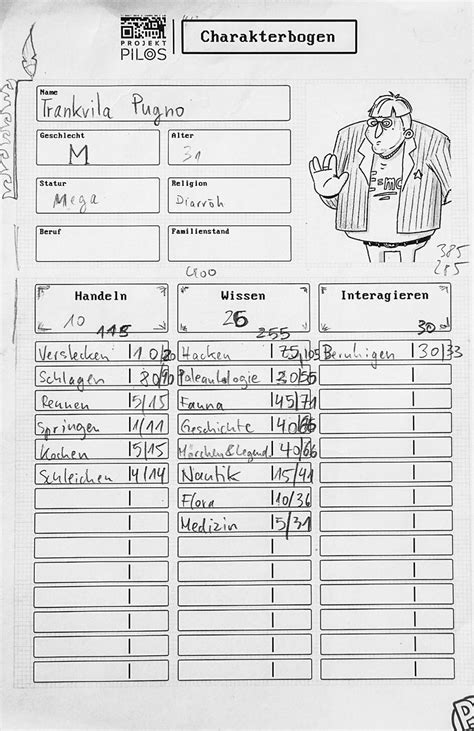 PROJEKT
PILOS
Charakterbogen
Name
Trankvila Pugno
Geschlecht Alter
M 31
Statur Religion
Mega Diarröh
Beruf Familienstand
SMC
385
285
400
Handeln Wissen Interagieren
10 115 26 255 30
Verstecken 10/20 Hacken 75/105 Beruhigen 30/33
Schlagen 80/90 Paleantologie 30/56
Rennen 5/15 Fauna 45/71
Springen 1/11 Geschichte 40/66
Kochen 5/15 Märchen&Legend. 40/66
Schleichen 4/14 Nautik 15/41
Flora 10/36
Medizin 5/31